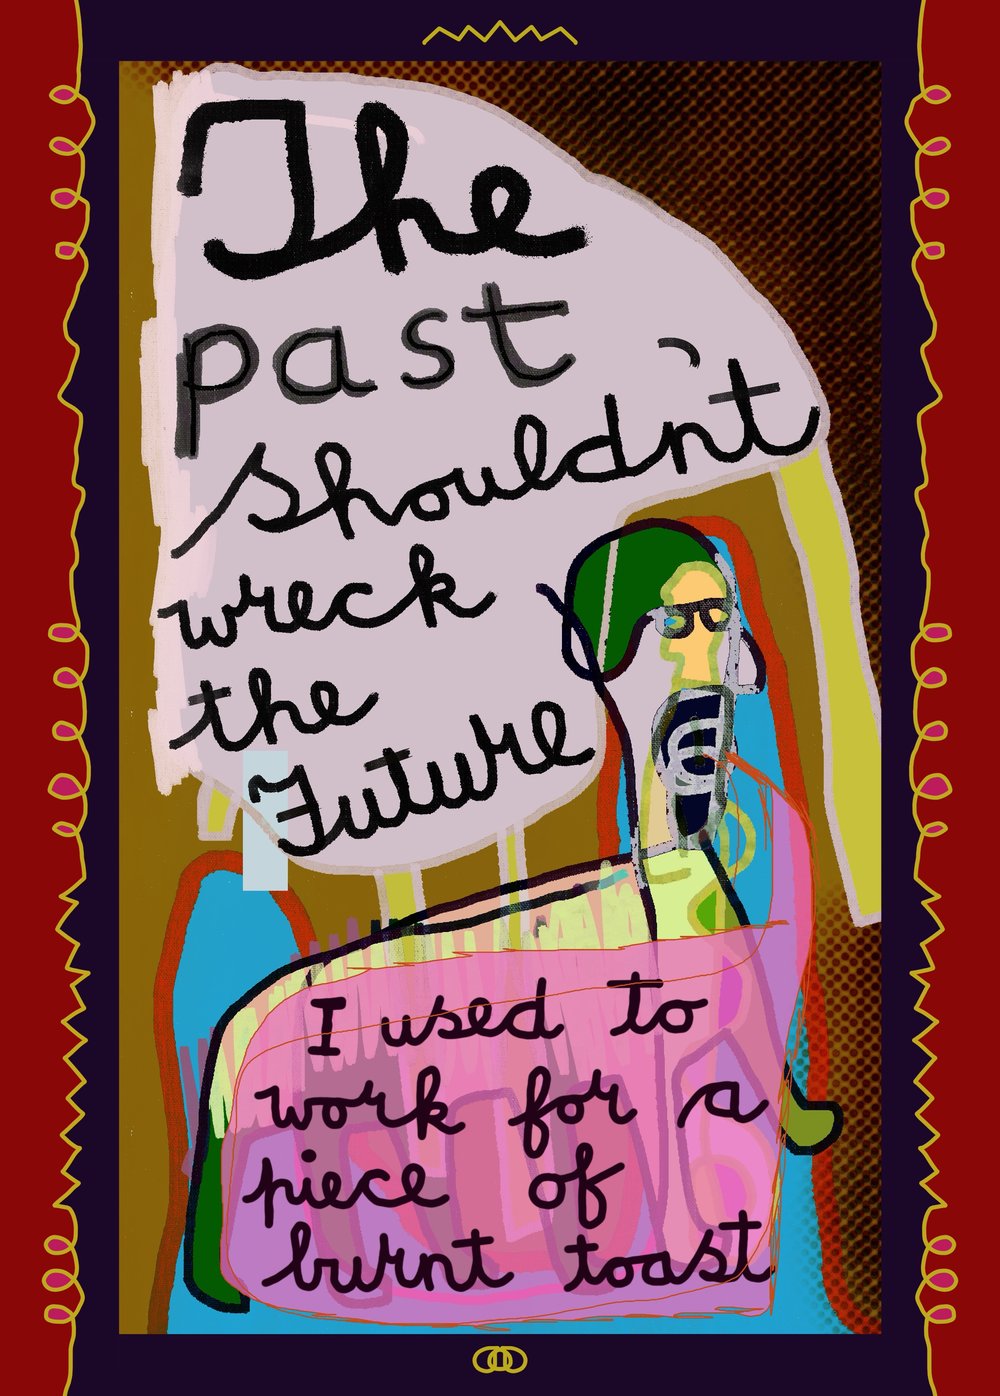 The
past
shouldn't
wreck
the
Future
I used to
work for a
piece of
burnt toast